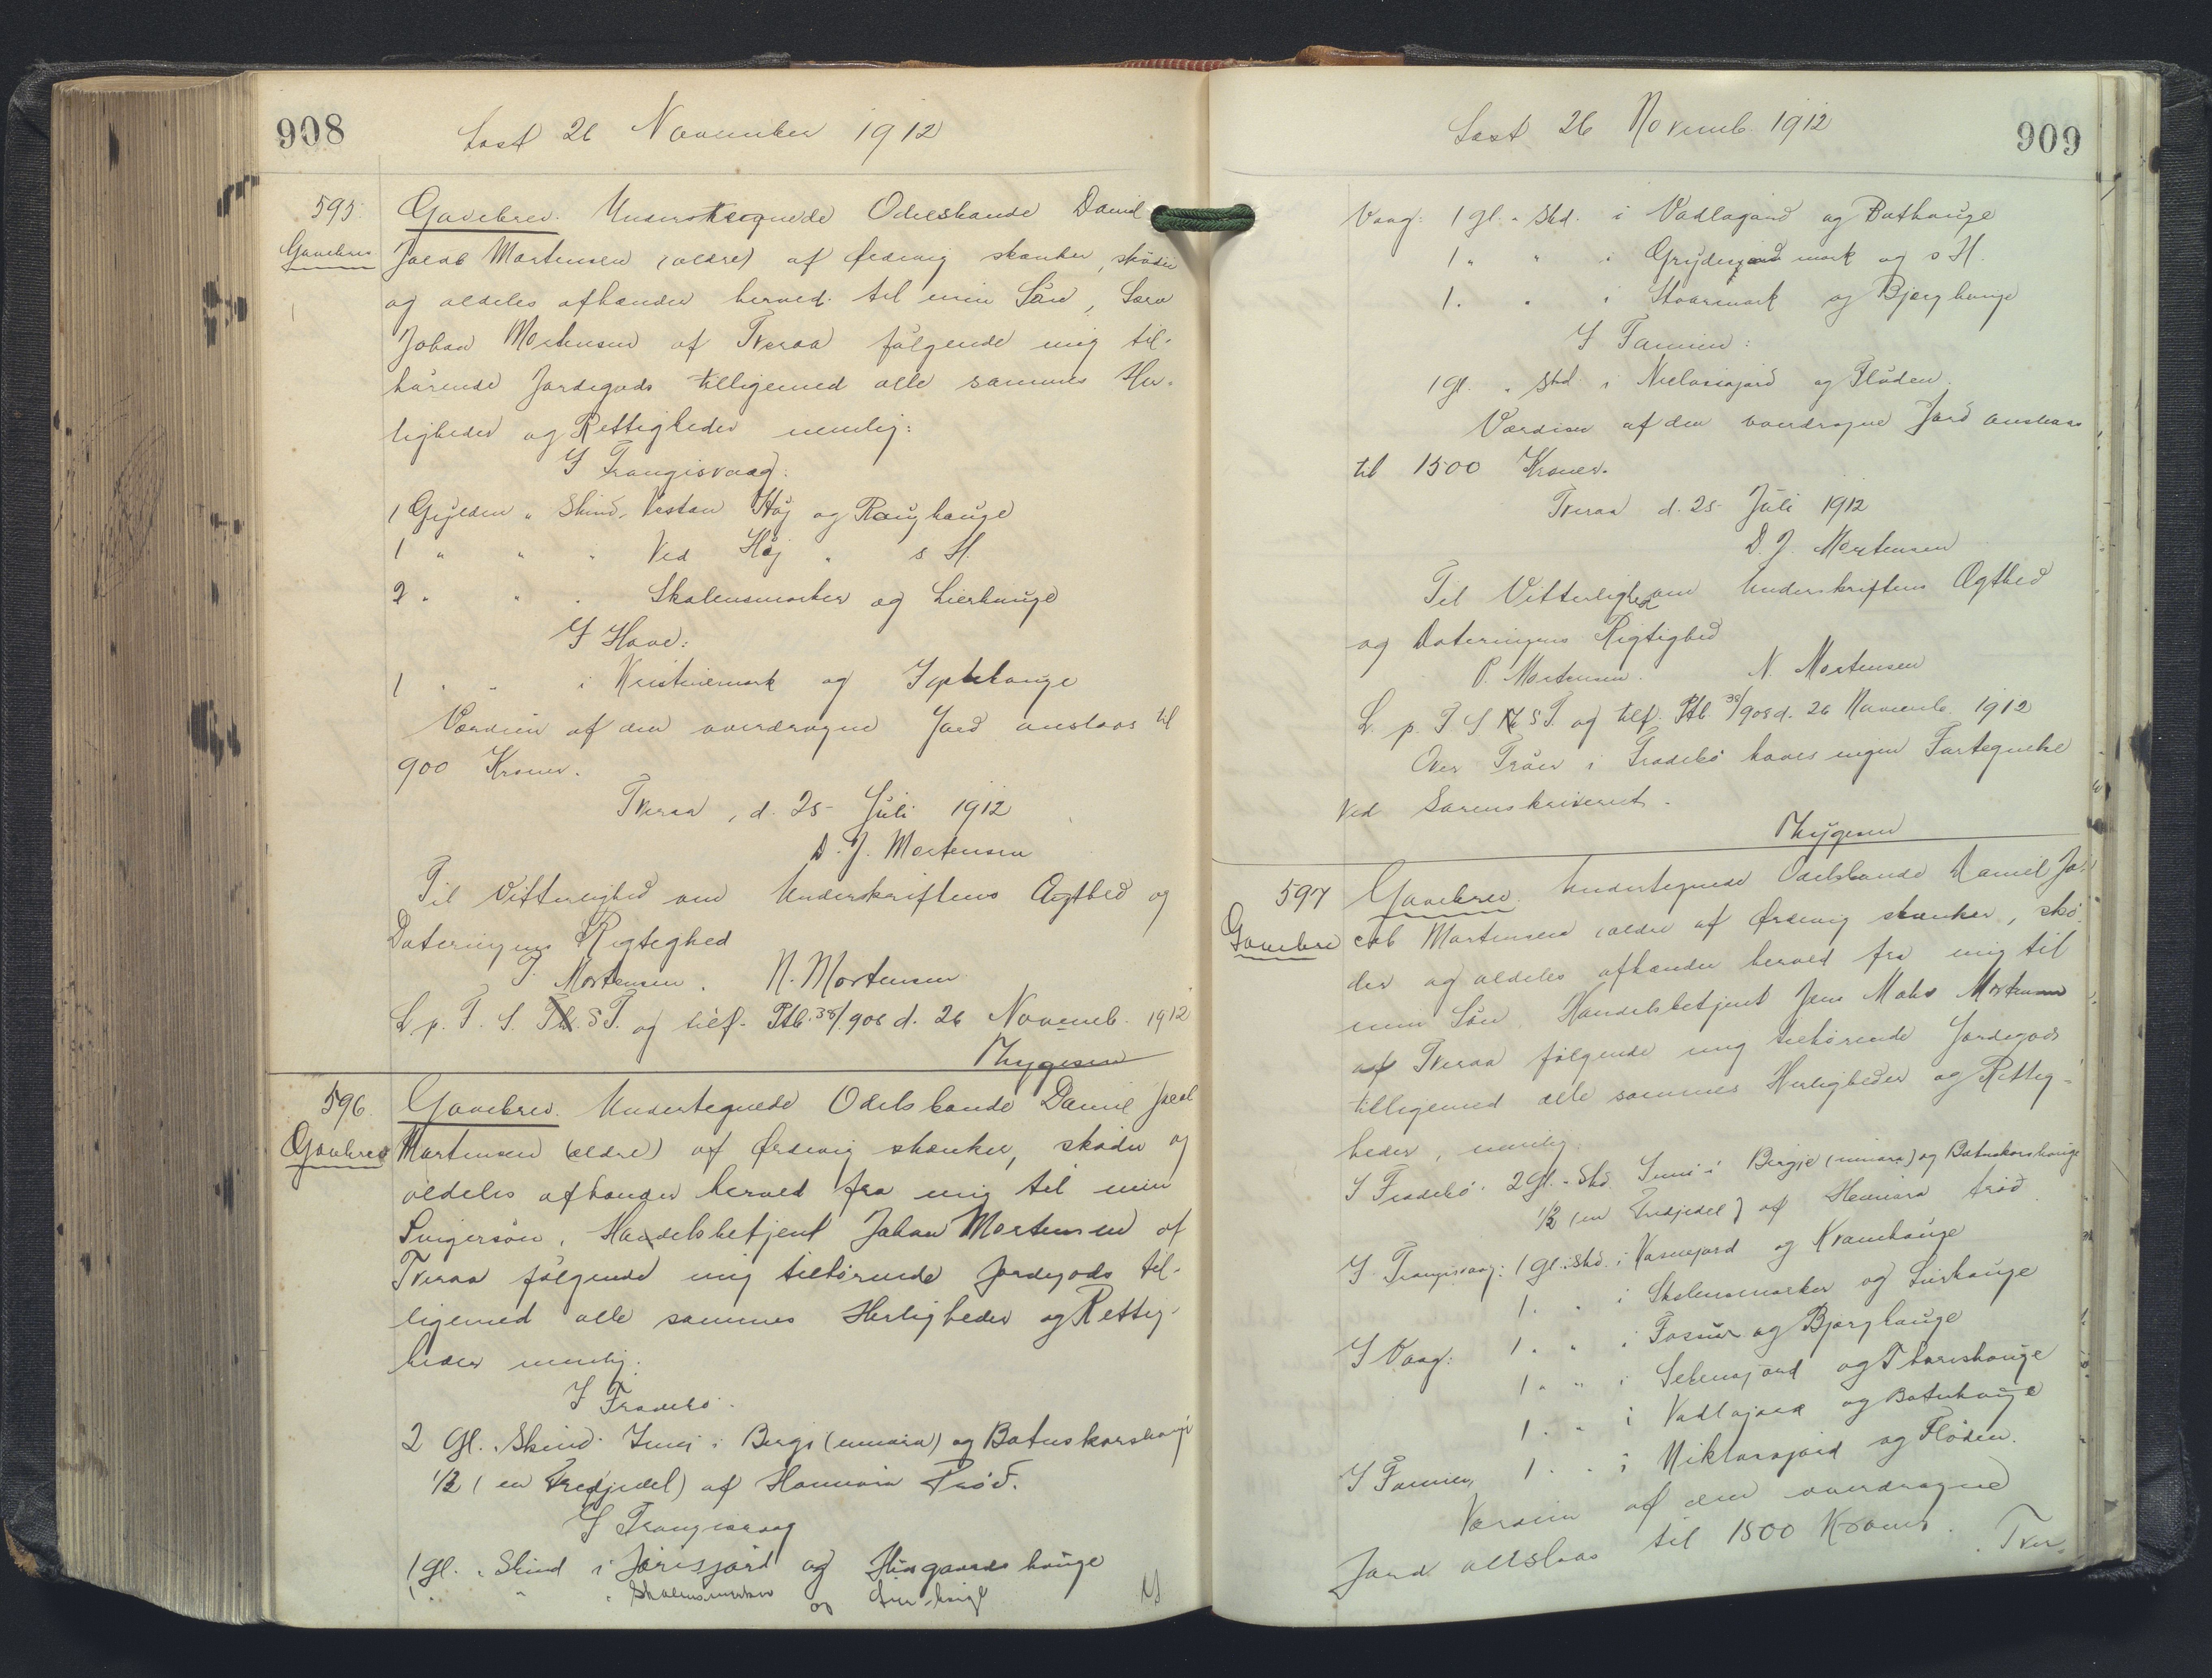 908
Læst 26 November 1912
595.
Gavebrev
Gavebrev. Undertegnede Odelsbonde Daniel
Jacob Mortensen (ældre) af Ørdevig skænker, skøder
og aldeles afhænder herved til min Søn, Lærer
Johan Mortensen af Tveraa følgende mig til-
hørende Jordegods tilligemed alle sammes Her-
ligheder og Rettigheder nemlig:
I Trangisvaag:
1 Gylden " Skind. Vestan Høj og Raughauge
1 " " " Ved Høj " s H.
2 " " " Skalensmørker og Lierhauge
I Hove:
1 " " i Kristinemørk og
Værdien af den overdragne Jord anslaas til
900 Kroner.
Tveraa, d. 25 Juli 1912
D. J. Mortensen
Til Vitterlighed om Underskriftens Ægthed og
Dateringens Rigtighed
P. Mortensen. N. Mortensen
L. p. T. S. T. og tilf. Ptb. 38/908 d. 26 Novemb. 1912
Thygesen
596.
Gavebrev
Gavebrev. Undertegnede Odelsbonde Daniel Jacob
Mortensen (ældre) af Ørdevig skænker, skøder og
aldeles afhænder herved fra mig til min
Svigersøn, Handelsbetjent Johan Mortensen af
Tveraa følgende mig tilhørende Jordegods til-
ligemed alle sammes Herligheder og Rettig-
heder nemlig:
I Frodebø.
2 Gl. " Skind Inni i Bergi (nuiara) og Batnskorshauge
1/3 (en Tredjedel) af Hanusia Trøð.
I Trangisvaag
1 Gl. " Skind i Jørisjørd og Husgaardshauge
1 " " " Skalensmørker og Lier hauge
909
Læst 26 Novemb. 1912
Vaag: 1 gl. " Skd. i Vadlagard og Bathauge
1 " " i mørk og s H.
1. " i Stvaremørk og Bjerghauge
I Famien:
1 gl. " Skd i Niclasiajord og Fløden.
Værdien af den overdragne Jord anslaas
til 1500 Kroner.
Tveraa d. 25 Juli 1912
D. J. Mortensen
Til Vitterlighed om Underskriftens Ægthed
og Dateringens Rigtighed
P. Mortensen. N. Mortensen
L. p. T S S T. og tilf. Ptb. 38/908 d. 26 Novemb. 1912
Over Trøer i Frodebø haves ingen Fortegnelse
ved Sorenskriveriet.
Thygesen
597
Gavebre
Gavebrev. Undertegnede Odelsbonde Daniel Ja-
cob Mortensen (ældre af Ørdevig skænker, skø-
der og aldeles afhænder herved fra mig til
min Søn Handelsbetjent Jens Mohr Mortensen
af Tveraa følgende mig tilhørende Jordegods
tilligemed alle sammes Herligheder og Rettig-
heder, nemlig.
I Frodebø. 2 gl. " Skd. Inni i Bergje (nuiara) og Batnskorshauge
1/3 (en Tredjedel) af Hanusia trøð
I Trangisvaag: 1 gl. " Skd. i Vasnejord og Kvanhauge
1. " i Skalensmørker og Lierhauge
I Vaag: 1. " i Fossur og Bjerghauge
1. " i Selensjord og Thorishauge
1. " i Vadlajord og Batnhauge
I Famien, 1. " i Niklasajord og Fløden.
Værdien af den overdragne
Jord anslaas til 1500 Kroner. Tver-